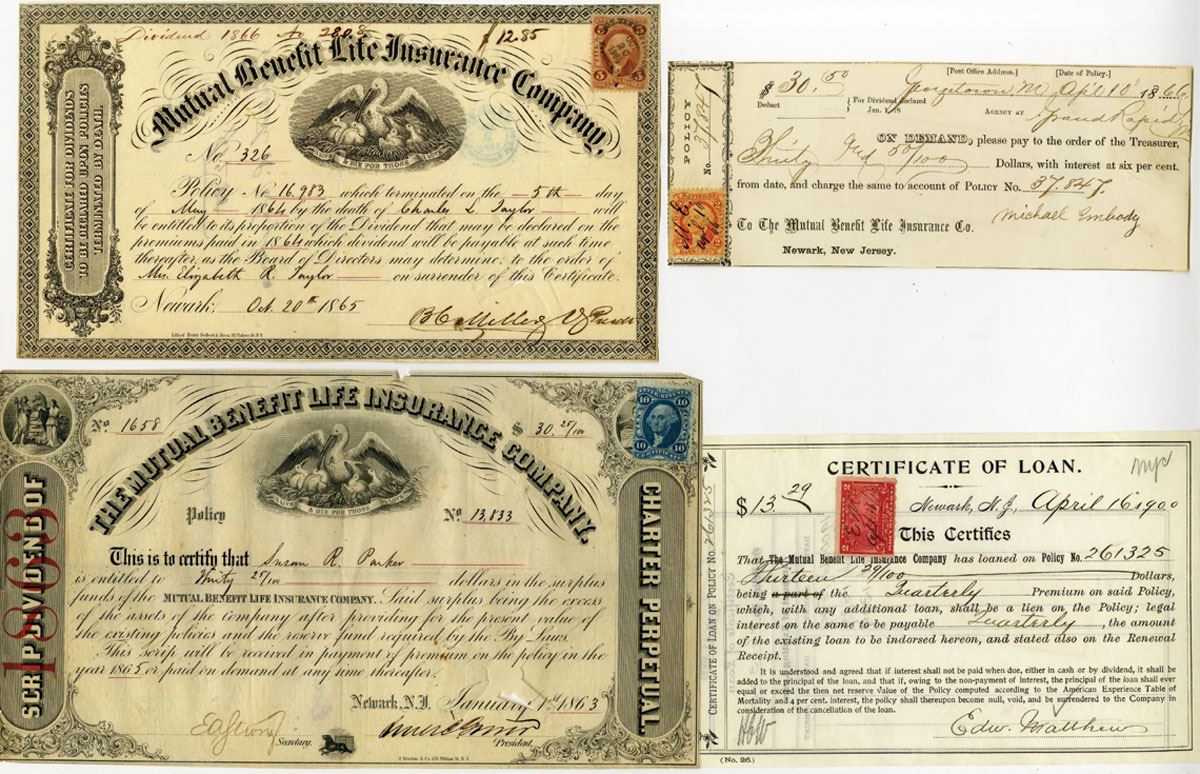 Dividend 1866 No 2808 $12.85
Mutual Benefit Life Insurance Company.
CERTIFICATE FOR DIVIDENDS
TO BE DECLARED UPON POLICIES
TERMINATED BY DEATH.
& DIE FOR THOSE
No. 326
Policy No 16,983 which terminated on the 5th day
of May 1864 by the death of Charles L Taylor will
be entitled to its portion of the Dividend that may be declared on the
premiums paid in 1864 which dividend will be payable at such time
and place as the Board of Directors may determine, to the order of
Mrs Elizabeth R. Taylor on surrender of this Certificate.
Newark: Oct. 20th 1865
[Post Office Address.] [Date of Policy.]
$ 30.50 Georgetown, April 10 1866
Deduct For Dividend declared
Jan. 1, 18 AGENCY AT Grand Rapids
POLICY
No. 37847
ON DEMAND, please pay to the order of the Treasurer,
Thirty and 50/100 Dollars, with interest at six per cent.
from date, and charge the same to account of POLICY No. 37.847.
Michael Embody
To The Mutual Benefit Life Insurance Co.
Newark, New Jersey.
No. 1658 $ 30.27/100
THE MUTUAL BENEFIT LIFE INSURANCE COMPANY.
SCRIP DIVIDEND OF
1863
CHARTER PERPETUAL.
INTER. REVENUE
10 10
10 10
CERTIFICATE
& DIE FOR THOSE
Policy No. 13,833
This is to certify that Susan R. Parker
is entitled to Thirty 27/100 dollars in the surplus
funds of the MUTUAL BENEFIT LIFE INSURANCE COMPANY. Said surplus being the excess
of the assets of the company after providing for the present value of
the existing policies and the reserve fund required by the By Laws.
This scrip will be received in payment of premium on the policy in the
year 1865 or paid on demand at any time thereafter.
Newark, N.J. January 1st 1863
Secretary. President.
CERTIFICATE OF LOAN.
$ 13.29 Newark, N. J., April 16 1900
This Certifies
CERTIFICATE OF LOAN ON POLICY No. 261325
That The Mutual Benefit Life Insurance Company has loaned on Policy No. 261325
Thirteen 29/100 Dollars,
being a part of the Quarterly Premium on said Policy,
which, with any additional loan, shall be a lien on the Policy; legal
interest on the same to be payable Quarterly, the amount
of the existing loan to be indorsed hereon, and stated also on the Renewal
Receipt.
It is understood and agreed that if interest shall not be paid when due, either in cash or by dividend, it shall be
added to the principal of the loan, and that if, owing to the non-payment of interest, the principal of the loan shall ever
equal or exceed the then net reserve value of the Policy computed according to the American Experience Table of
Mortality and 4 per cent. interest, the policy shall thereupon become null, void, and be surrendered to the Company in
consideration of the cancellation of the loan.
Edw. Matthews
(No. 26.)